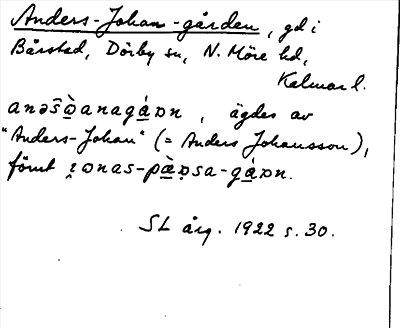 Anders-Johan-gården, gd i
Bårstad, Dörby sn, N. Möre hd,
Kalmar l.
anəs̑ò̱anagá̱ɒn, ägdes av
"Anders-Johan" (= Anders Johansson),
förut ı̯ɒnas-pæ̱̀ɒ̣sa-gá̱ɒn.
SL årg. 1922 s. 30.